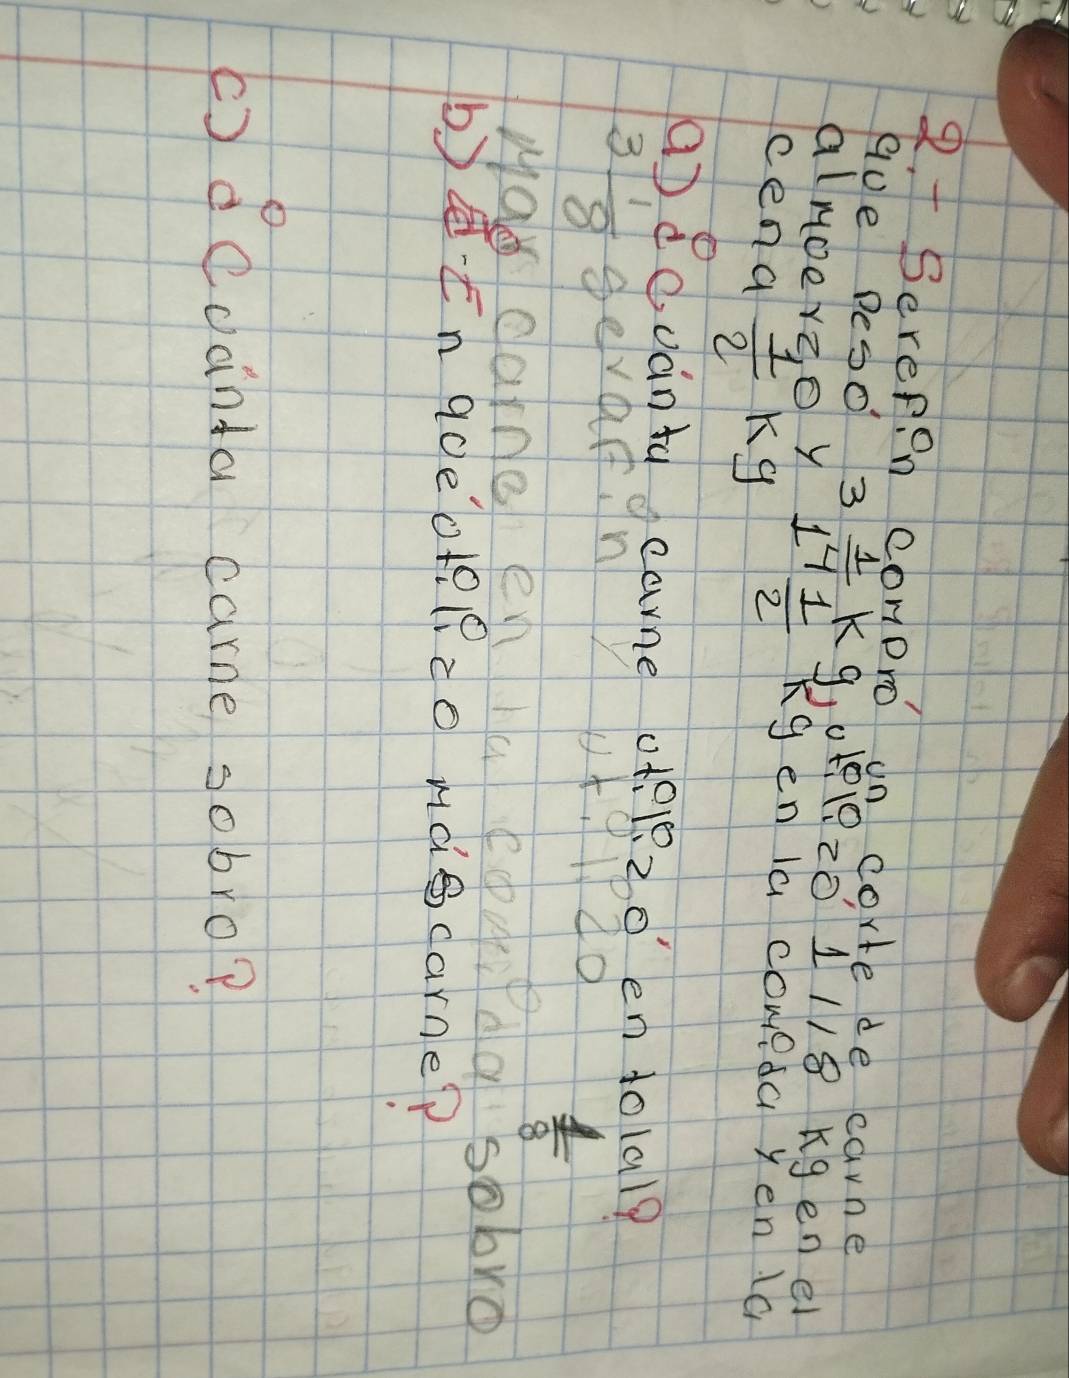 2.- Serefin compró un corte de carne
que pesó 3 1/2 kg, utilizó 1 1/8 kg en el
almoerzo y 1 4 1/2 kg en la comida y en la
cena 1/2 kg
a) ¿Cuánta carne utilizó en total?
3 1/8 Serafin utilizo
1/8
Mas carne en la comida sobro
b) En qué utilizo más carne?
c) ¿Cuánta carne sobro?